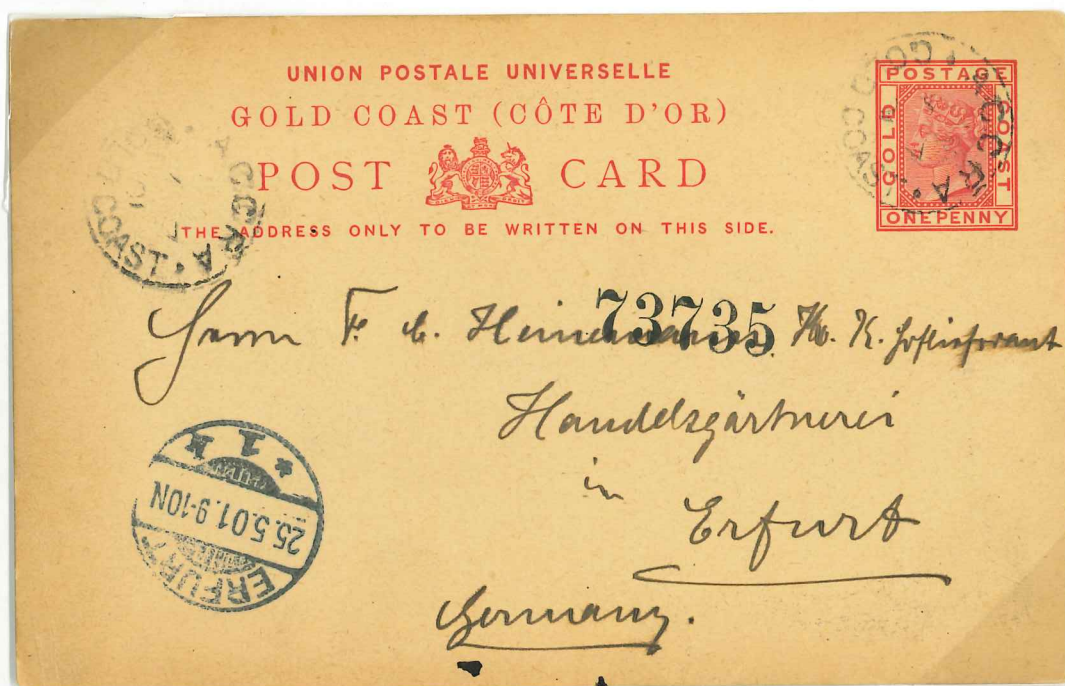 UNION POSTALE UNIVERSELLE
GOLD COAST (CÔTE D'OR)
POST CARD
THE ADDRESS ONLY TO BE WRITTEN ON THIS SIDE.
POSTAGE
GOLD COAST
ONE PENNY
ACCRA
GOLD COAST
ACCRA
COAST
73735
Herrn F. C. Heinemann K. K. Hoflieferant
Handelsgärtnerei
in
Erfurt
Germany.
ERFURT
25.5.01.9-10N
* 1 k